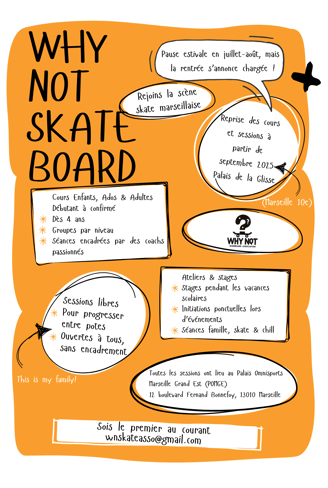 WHY
NOT
SKATE
BOARD
Pause estivale en juillet-août, mais
la rentrée s'annonce chargée !
Rejoins la scène
skate marseillaise
Reprise des cours
et sessions à
partir de
septembre 2025
Palais de la Glisse
(Marseille 10e)
Cours Enfants, Ados & Adultes
Débutant à confirmé
Dès 4 ans
Groupes par niveau
Séances encadrées par des coachs
passionnés
?
WHY NOT
Ateliers & stages
Stages pendant les vacances
scolaires
Initiations ponctuelles lors
d'événements
Séances famille, skate & chill
Sessions libres
Pour progresser
entre potes
Ouvertes à tous,
sans encadrement
This is my family!
Toutes les sessions ont lieu au Palais Omnisports
Marseille Grand Est (POMGE)
12 boulevard Fernand Bonnefoy, 13010 Marseille
Sois le premier au courant
wnskateasso@gmail.com